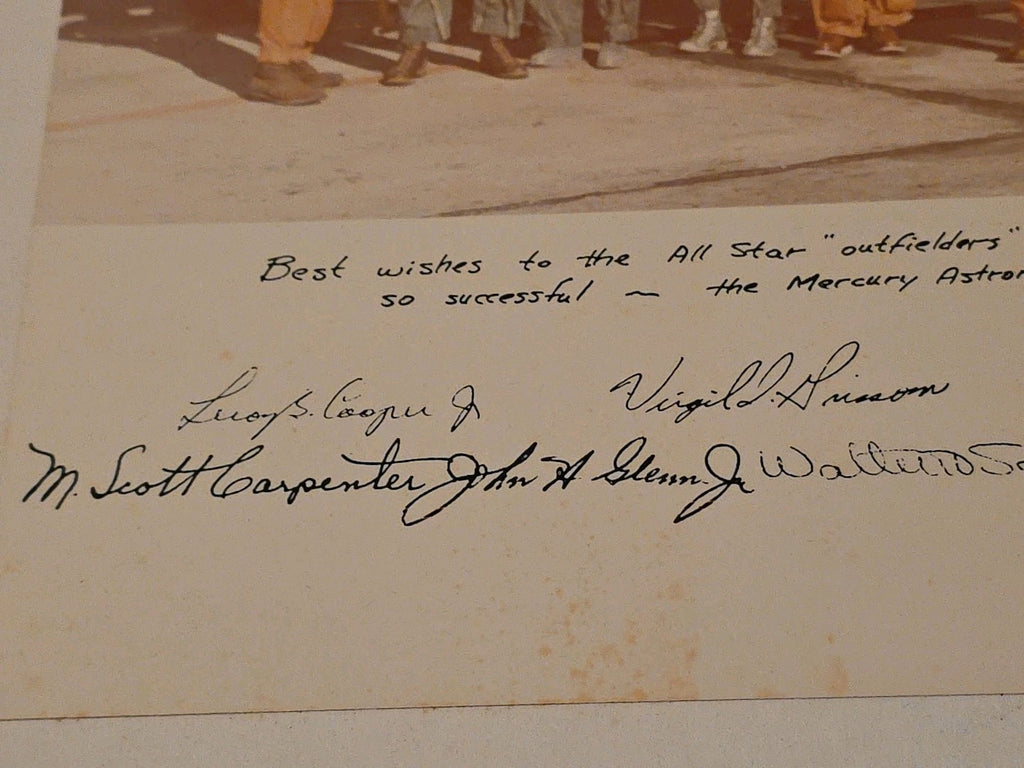 Best wishes to the All Star "outfielders"
so successful ~ the Mercury Astron
Leroy G. Cooper Jr Virgil I. Grissom
M. Scott Carpenter John H Glenn Jr